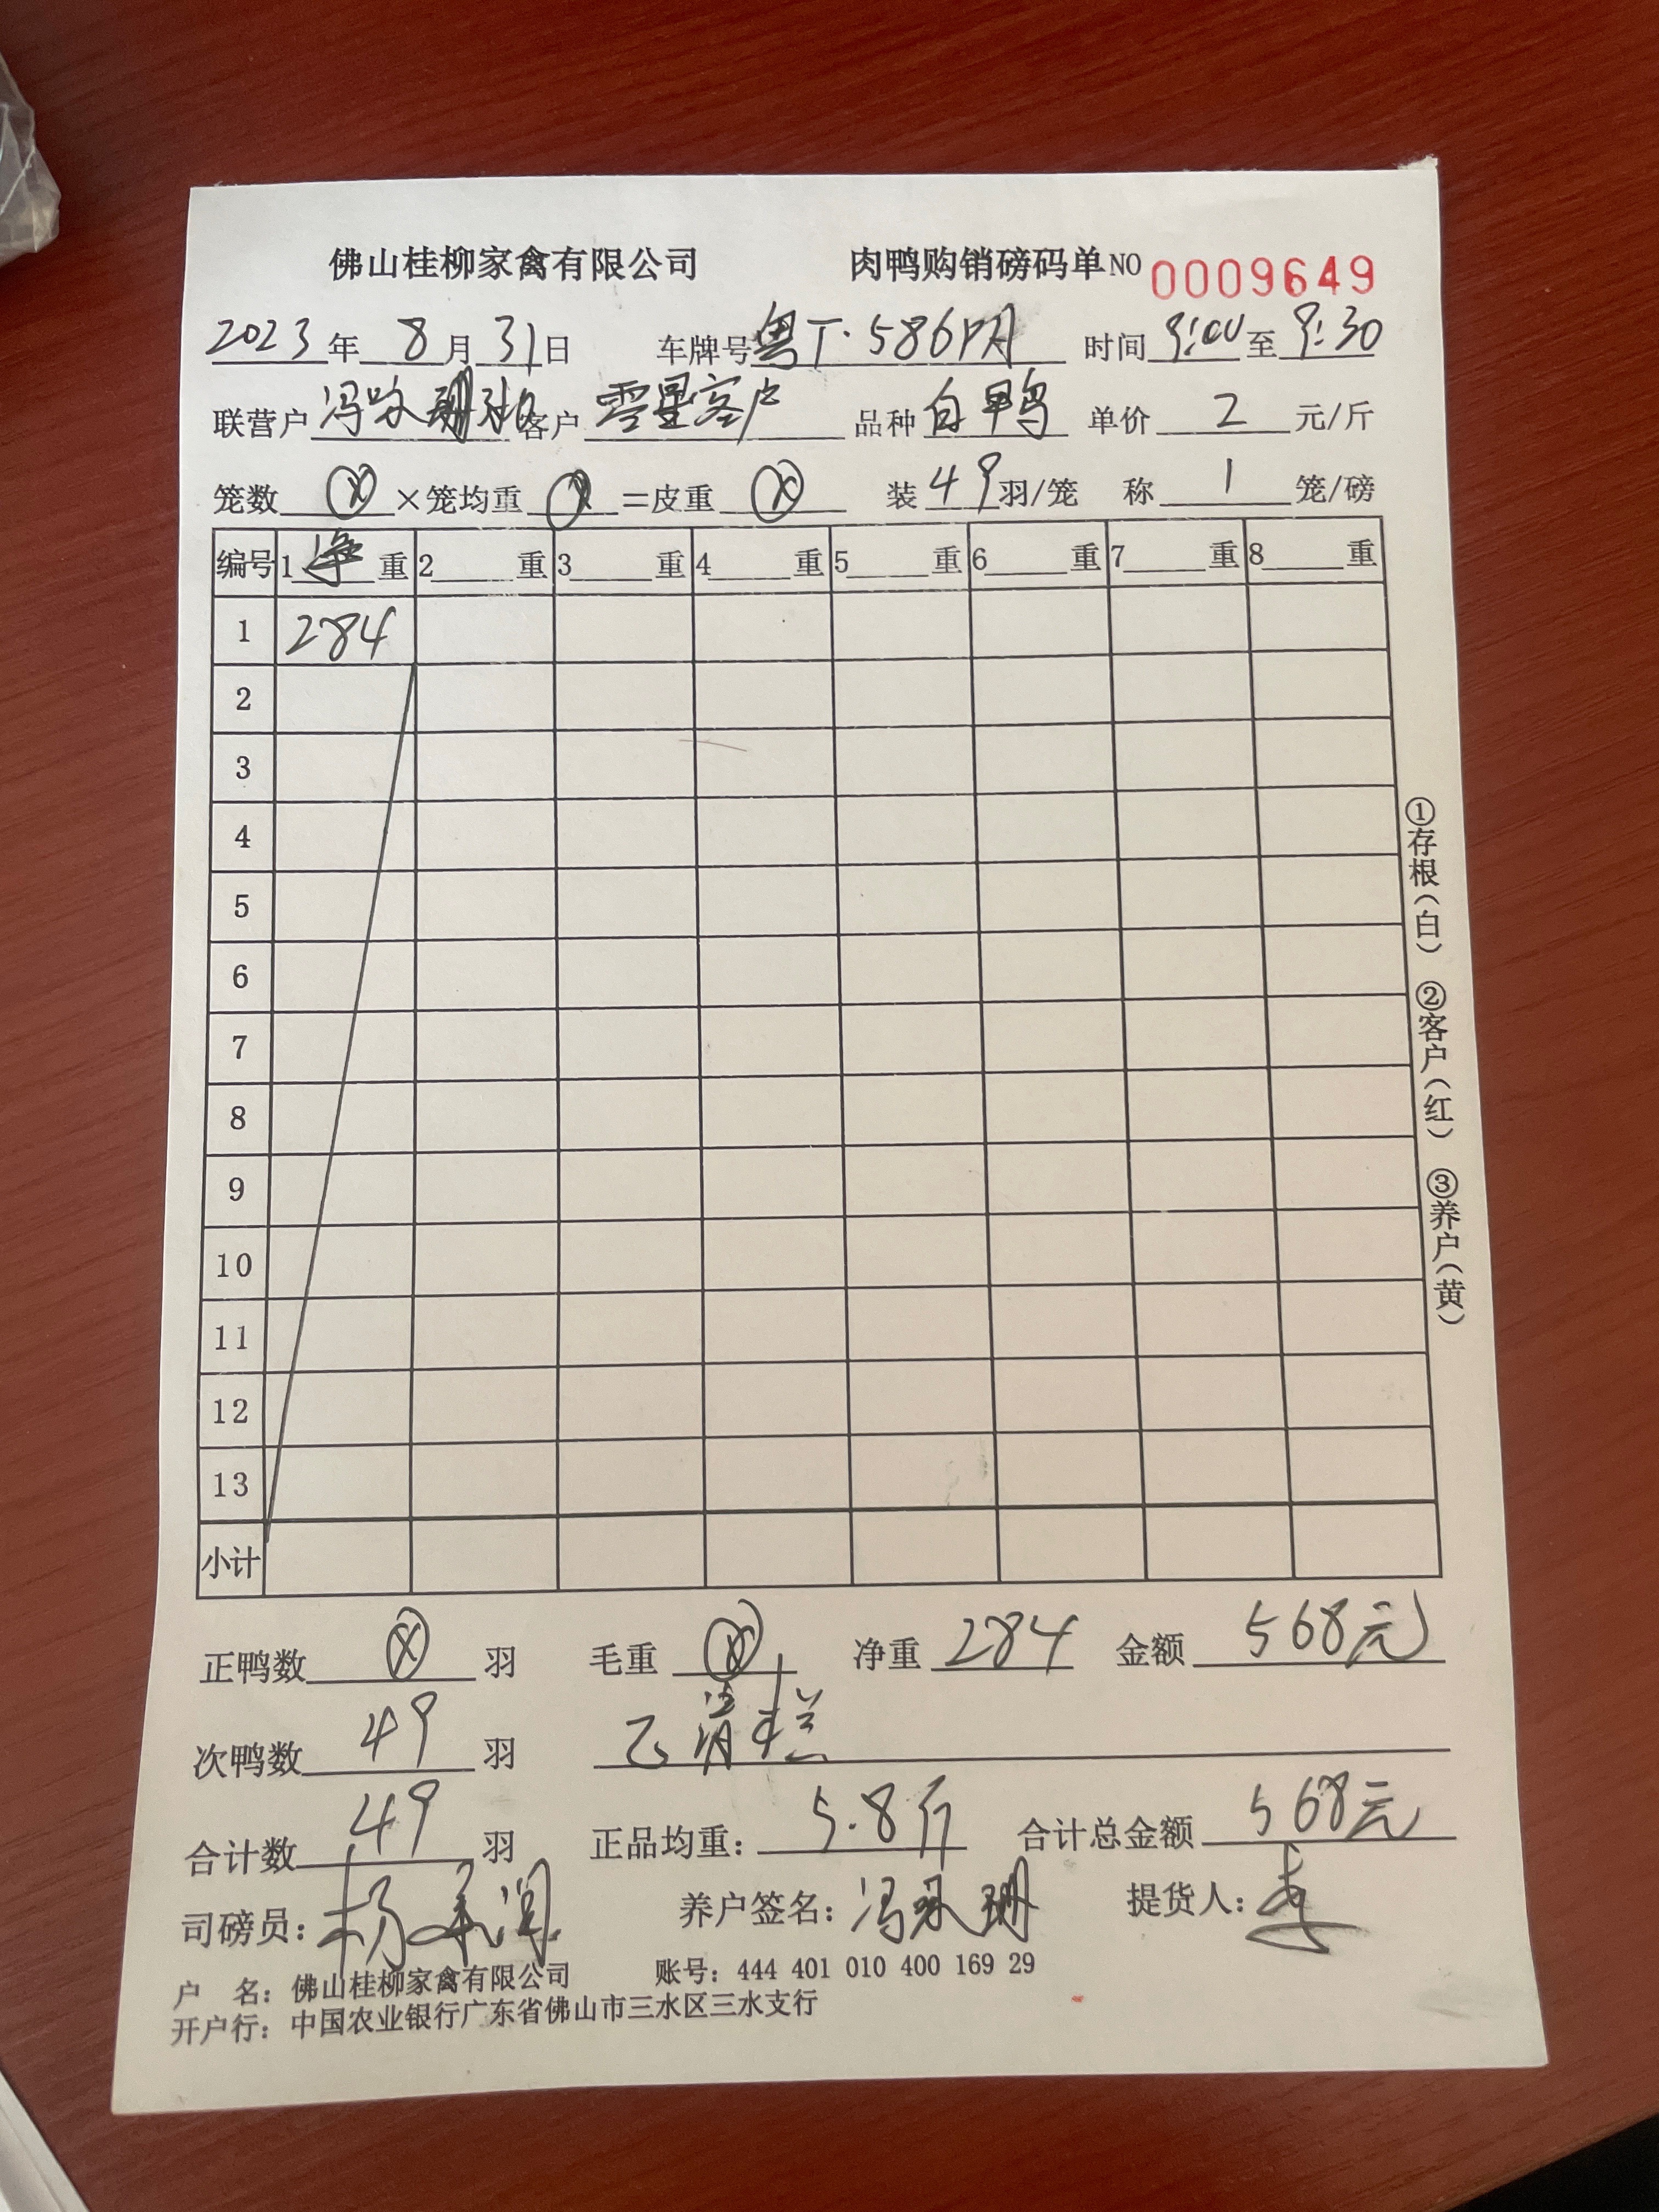 佛山桂柳家禽有限公司 肉鸭购销磅码单 NO 0009649
2023年8月31日 车牌号 粤T·586 时间 9:00 至 9:30
联营户 冯咏珊 客户 零星客户 品种 白鸭 单价 2 元/斤
笼数 ⊗ ×笼均重 ⊗ =皮重 ⊗ 装 49 羽/笼 称 1 笼/磅
编号 1 净 重 2 重 3 重 4 重 5 重 6 重 7 重 8 重
1 284
2
3
4
5
6
7
8
9
10
11
12
13
小计
①存根(白) ②客户(红) ③养户(黄)
正鸭数 ⊗ 羽 毛重 ⊗ 净重 284 金额 568元
次鸭数 49 羽 已消
合计数 49 羽 正品均重: 5.8斤 合计总金额 568元
司磅员: 杨 养户签名: 冯咏珊 提货人: 李
户 名: 佛山桂柳家禽有限公司 账号: 444 401 010 400 169 29
开户行: 中国农业银行广东省佛山市三水区三水支行